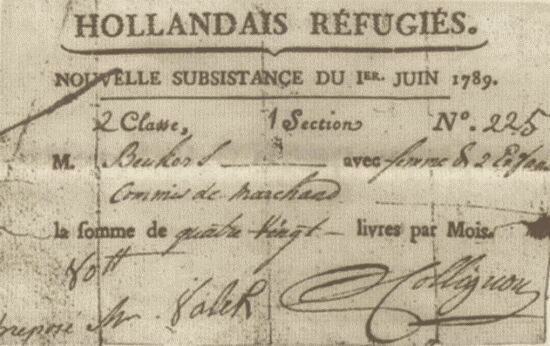 HOLLANDAIS RÉFUGIÉS.
NOUVELLE SUBSISTANCE DU IER. JUIN 1789.
2 Classe, 1 Section No. 225
M. Beukers avec femme & 2 Enfans
Commis de Marchand
la somme de quatre Vingt livres par Mois.
80 tt
preposé Mr. Valck Collignon